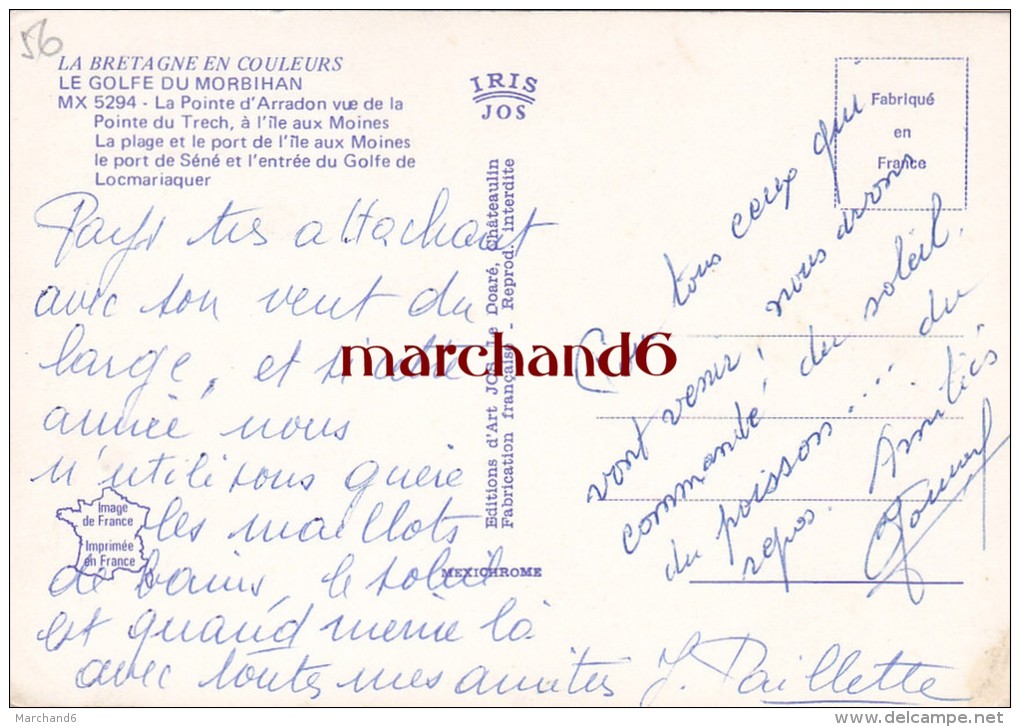 56
LA BRETAGNE EN COULEURS
LE GOLFE DU MORBIHAN
MX 5294 - La Pointe d'Arradon vue de la
Pointe du Trech, à l'île aux Moines
La plage et le port de l'île aux Moines
le port de Séné et l'entrée du Golfe de
Locmariaquer
IRIS
JOS
Fabriqué
en
France
Editions d'Art JOS Le Doaré, Châteaulin
Fabrication française - Reprod. interdite
MEXICHROME
Image
de France
Imprimée
en France
Pays très attachant
avec son vent du
large, et si cette
année nous
n'utilisons guère
les maillots
de bains, le soleil
est quand même là
avec toutes mes amitiés J. Paillette
tous ceux qui
vont venir, nous avons
commandé du soleil,
du poisson.... du
repos. Amitiés
marchand6
Marchand6
delcampe.net